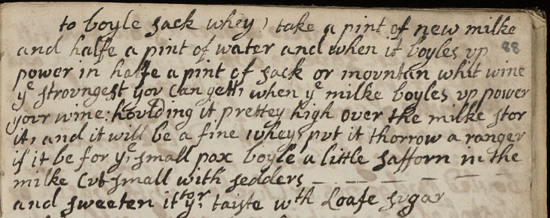 to boyle sack whey) take a pint of new milke
and halfe a pint of water and when it boyles vp 88
power in halfe a pint of sack or movntan whit wine
ye strovngest yov can gett, when ye milke boyles vp power
yovr wine: hovlding it prettey high over the milke stor
it, and it will be a fine whey: pvt it thorrow a ranger
if it be for ye small pox boyle a little safforn in the
milke cvt small with sedders
and sweeten it to yr taiste wth Loafe svgar